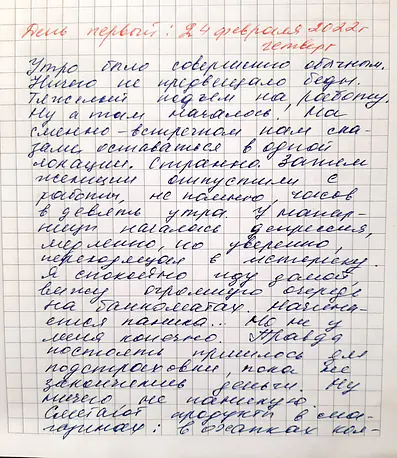 День первый: 24 февраля 2022г
четверг
Утро было совершенно обычным.
Ничто не предвещало беды.
Тяжелый подъем на работу.
Ну а там началось. На
сменно-встречном нам ска-
зали оставаться в одной
локации. Странно. Затем
женщин отпустили с
работы, не помню, часов
в девять утра. У
началось депрессия,
медленно, но уверенно,
переходящая в истерику.
Я спокойно иду домой,
вижу огромную очередь
на банкоматах. Начина-
ется паника... Но не у
меня конечно. Правда
постоять пришлось для
подстраховки, пока не
закончились деньги. Ну
ничего не паникую.
Сметают продукты в ма-
газинах: в охапках кол-